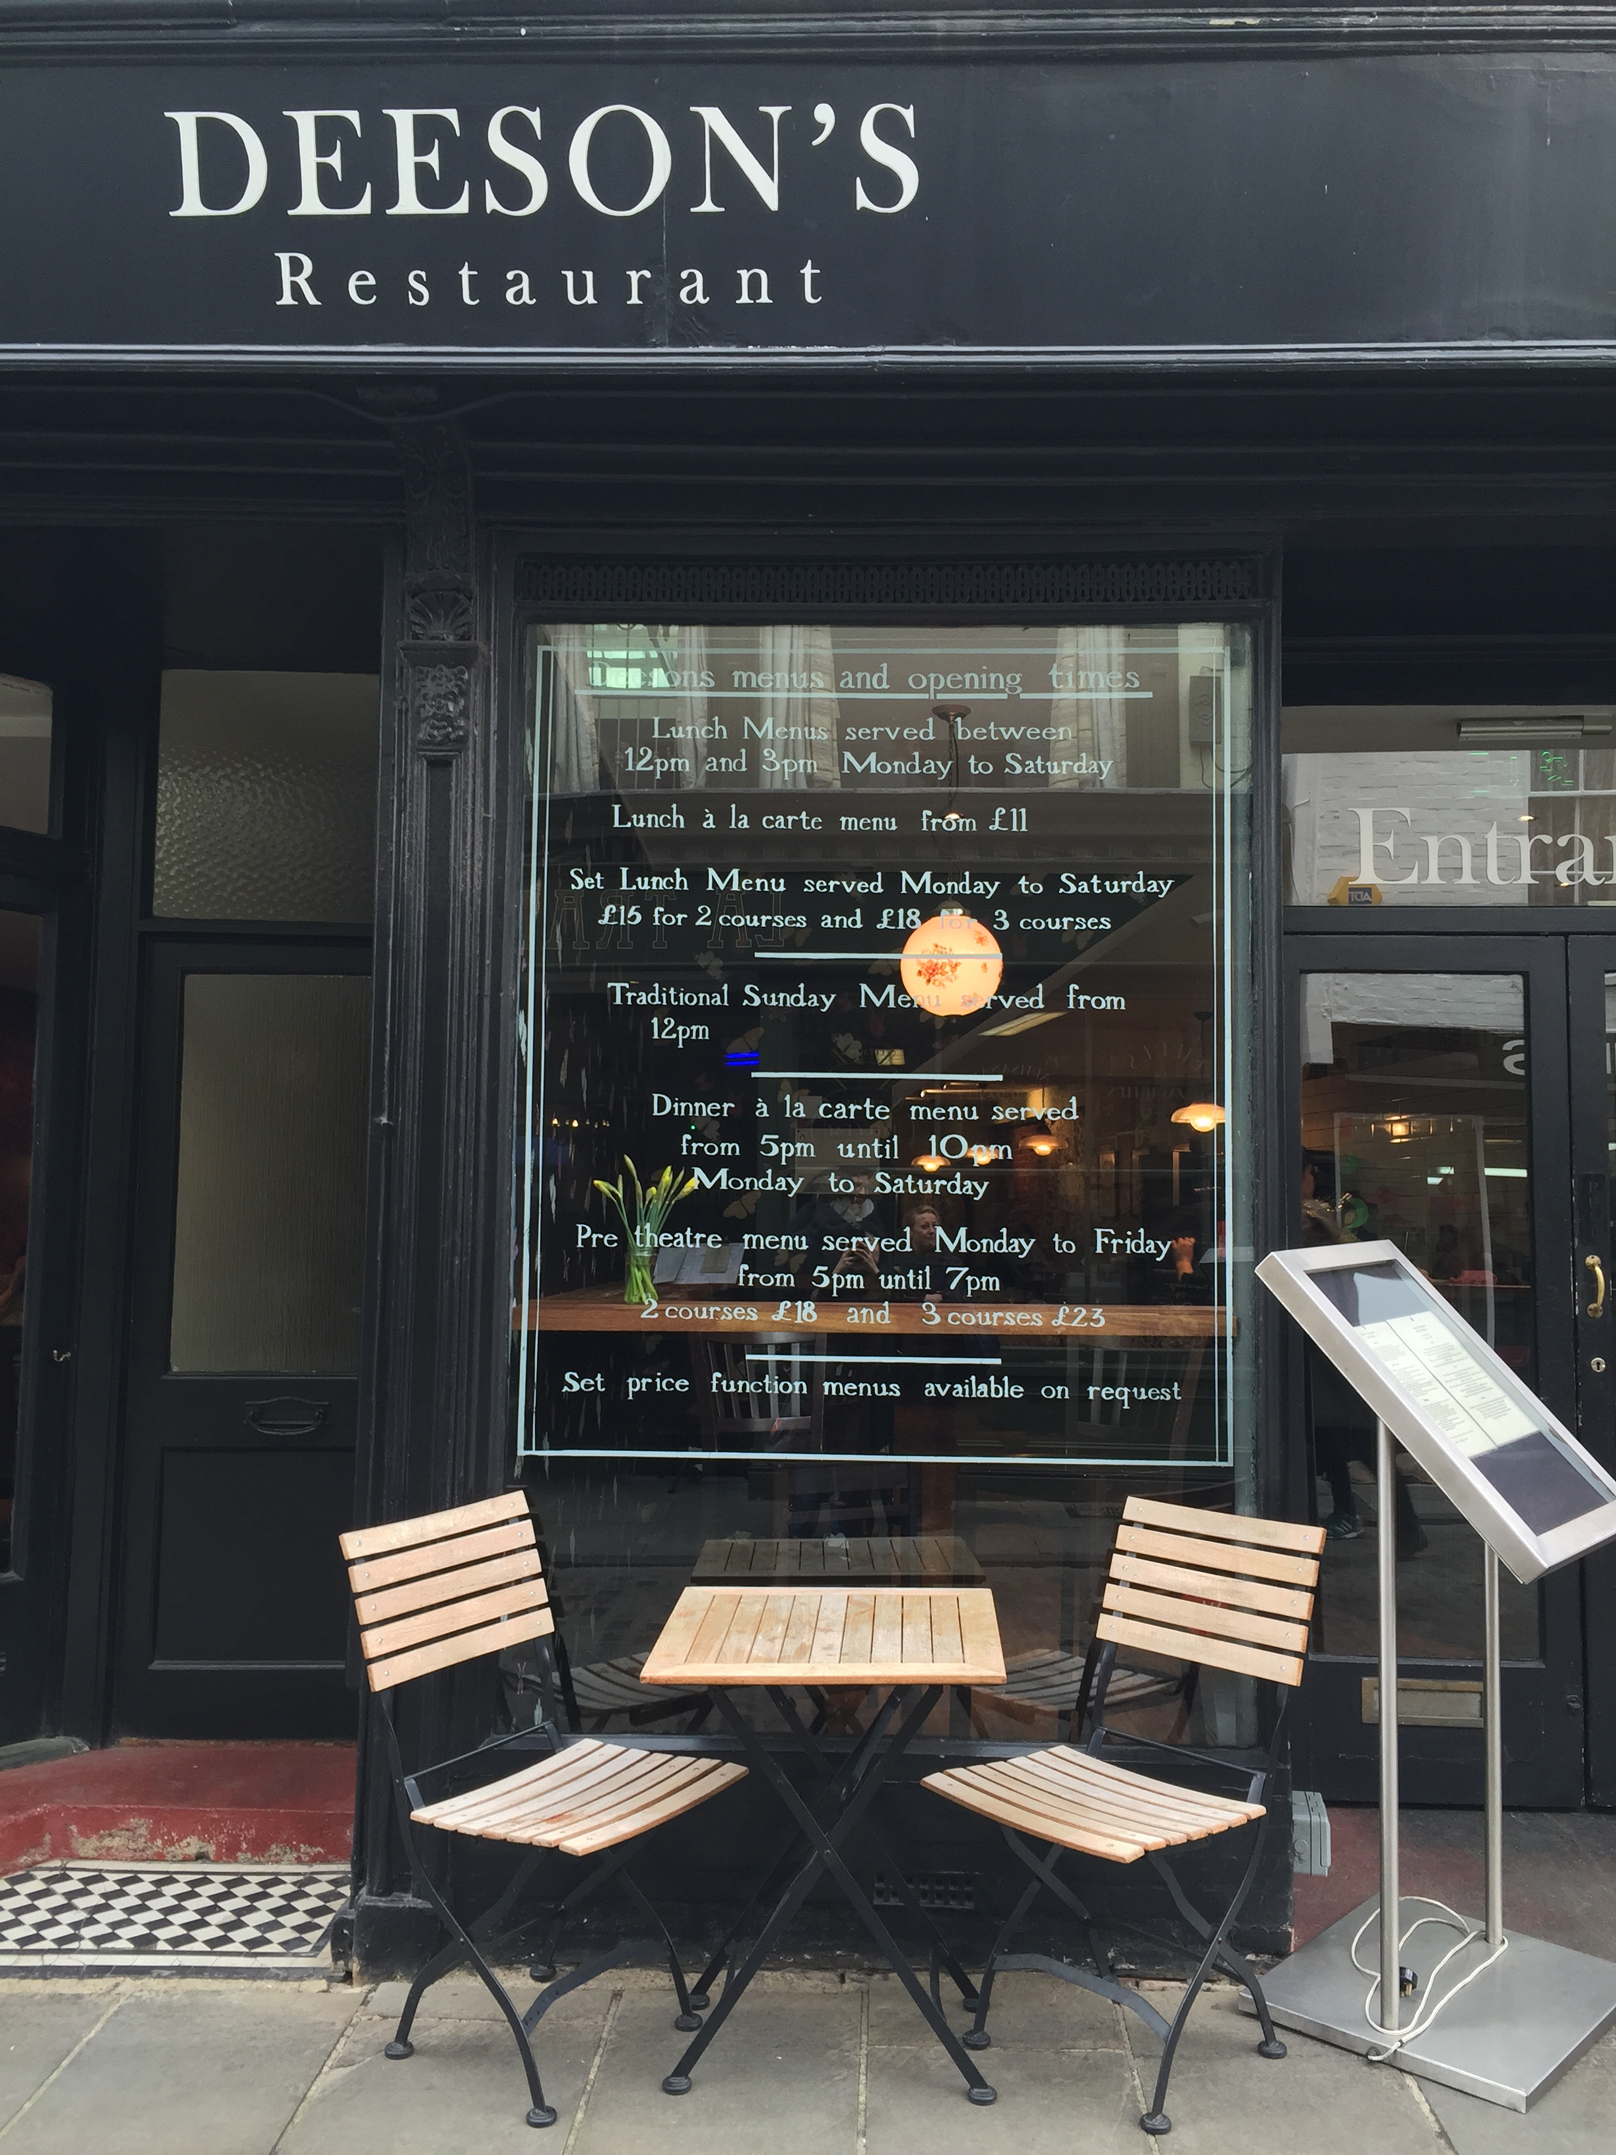 DEESON'S
Restaurant
Deesons menus and opening times
Lunch Menus served between
12pm and 3pm Monday to Saturday
Lunch à la carte menu from £11
Set Lunch Menu served Monday to Saturday
£15 for 2 courses and £18 for 3 courses
Traditional Sunday Menu served from
12pm
Dinner à la carte menu served
from 5pm until 10pm
Monday to Saturday
Pre theatre menu served Monday to Friday
from 5pm until 7pm
2 courses £18 and 3 courses £23
Set price function menus available on request
Entran
ADT